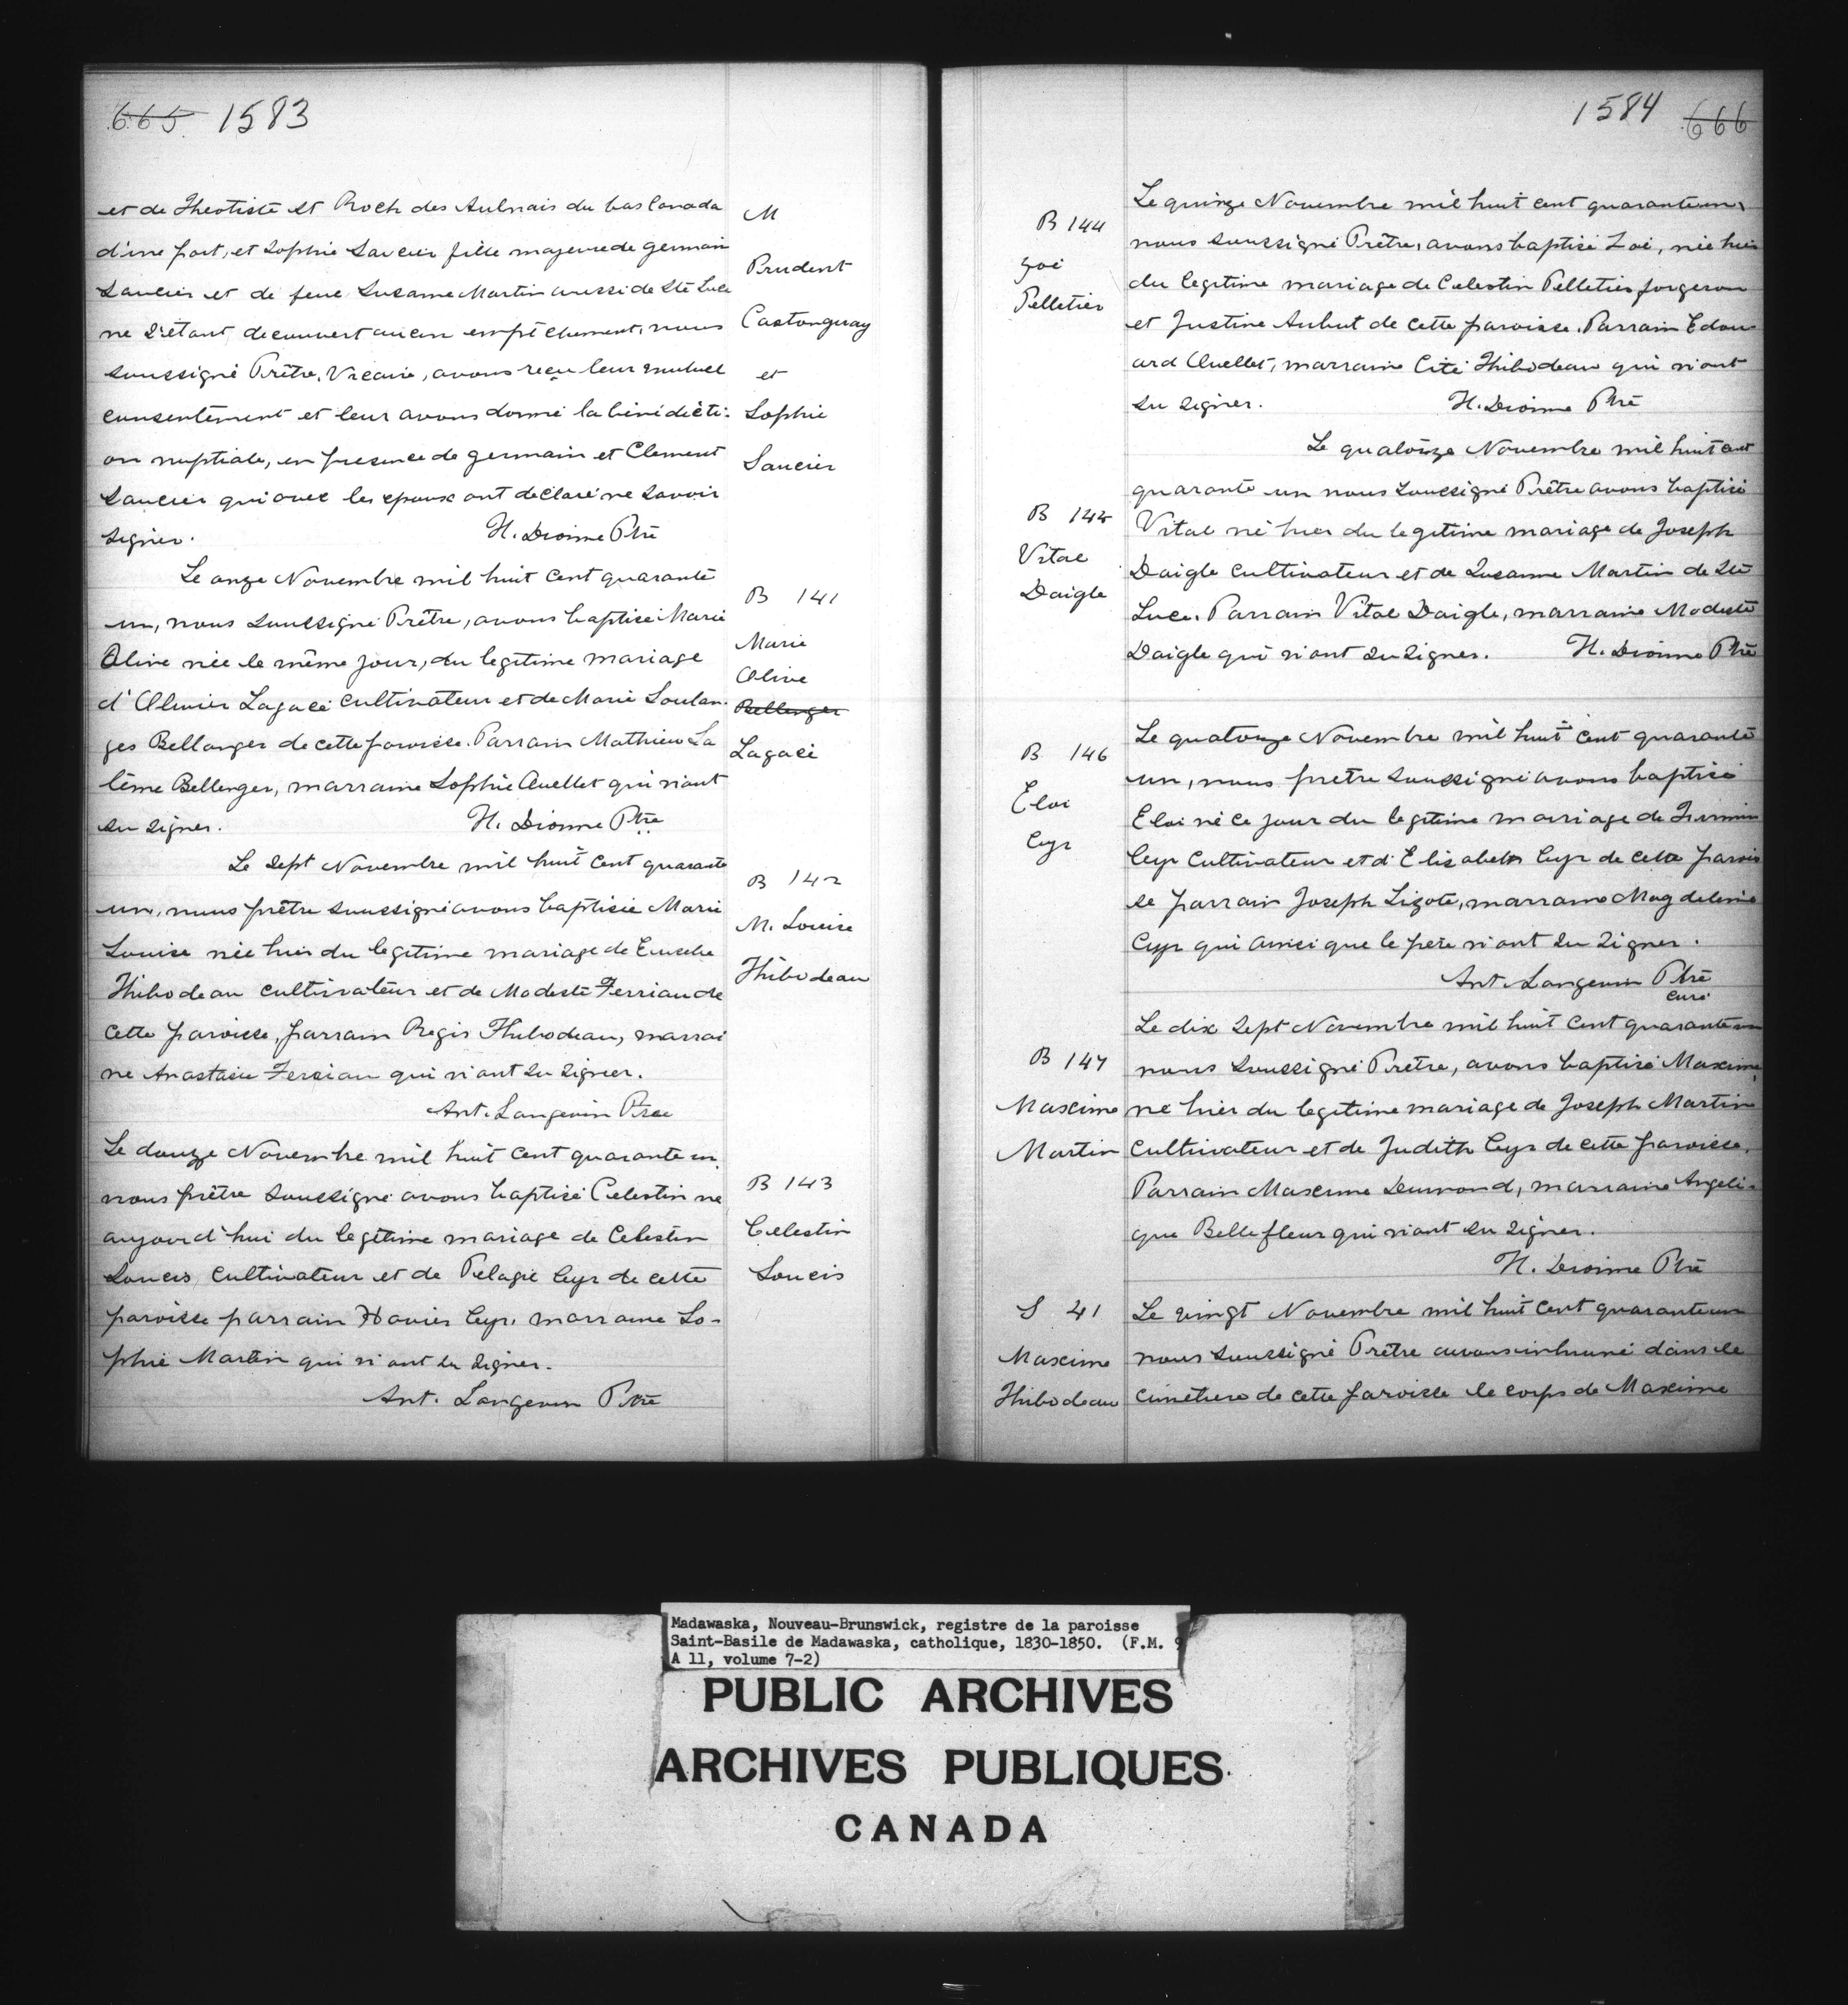 665 1583
et de Theotiste St Roch des Aulnais du bas Canada
d'une part, et Sophie Saucier fille majeure de germain
Saucier et de feue Susanne Martin aussi de Ste Luce
ne s'étant decouvert aucun empêchement, nous
soussigné Prêtre, Vicaire, avons reçu leur mutuel
consentement et leur avons donné la bénédicti-
on nuptiale, en presence de germain et Clement
Saucier qui avec les epoux ont declaré ne savoir
signer. H. Dionne Ptre
M
Prudent
Castonguay
et
Sophie
Saucier
Le onze Novembre mil huit cent quarante
un, nous soussigné Prêtre, avons baptisé Marie
Olive née le même jour, du legitime mariage
d'Olivier Lagacé cultivateur et de Marie Soulan-
ges Bellanger de cette paroisse. Parrain Mathieu La
lême Bellenger, marraine Sophie Ouellet qui n'ont
su signer. H. Dionne Ptre
B 141
Marie
Olive
Bellenger
Lagacé
Le sept Novembre mil huit cent quarante
un, nous prêtre soussigné avons baptisée Marie
Louise née hier du legitime mariage de Eusebe
Thibodeau cultivateur et de Modeste Terriau de
cette paroisse, parrain Regis Thibodeau, marrai
ne Anastasie Terriau qui n'ont su signer.
Ant. Langevin Ptre
B 142
M. Louise
Thibodeau
Le douze Novembre mil huit cent quarante un
nous prêtre soussigné avons baptisé Celestin né
aujourd'hui du legitime mariage de Celestin
Soucis cultivateur et de Pelagie Cyr de cette
paroisse parrain Xavier Cyr, marraine So-
phie Martin qui n'ont su signer.
Ant. Langevin Ptre
B 143
Celestin
Soucis
1584 666
B 144
Zoé
Pelletier
Le quinze Novembre mil huit cent quarante un,
nous soussigné Prêtre, avons baptisé Zoé, née hier
du legitime mariage de Celestin Pelletier forgeron
et Justine Aubut de cette paroisse. Parrain Edou-
ard Ouellet, marraine Cité Thibodeau qui n'ont
su signer. H. Dionne Ptre
B 145
Vital
Daigle
Le quatorze Novembre mil huit cent
quarante un nous soussigné Prêtre avons baptisé
Vital né hier du legitime mariage de Joseph
Daigle cultivateur et de Susanne Martin de Ste
Luce. Parrain Vital Daigle, marraine Modeste
Daigle qui n'ont su signer. H. Dionne Ptre
B 146
Eloi
Cyr
Le quatorze Novembre mil huit cent quarante
un, nous prêtre soussigné avons baptisé
Eloi né ce jour du legitime mariage de Firmin
Cyr cultivateur et d'Elisabeth Cyr de cette parois
se parrain Joseph Lizote, marraine Magdeleine
Cyr qui ainsi que le père n'ont su signer.
Ant. Langevin Ptre
curé
B 147
Maxime
Martin
Le dix sept Novembre mil huit cent quarante un
nous soussigné Prêtre, avons baptisé Maxime,
né hier du legitime mariage de Joseph Martin
cultivateur et de Judith Cyr de cette paroisse.
Parrain Maxime Dumond, marraine Angeli-
que Bellefleur qui n'ont su signer.
H. Dionne Ptre
S 41
Maxime
Thibodeau
Le vingt Novembre mil huit cent quarante un
nous soussigné Prêtre avons inhumé dans le
cimetiere de cette paroisse le corps de Maxime
Madawaska, Nouveau-Brunswick, registre de la paroisse
Saint-Basile de Madawaska, catholique, 1830-1850. (F.M. 9
A 11, volume 7-2)
PUBLIC ARCHIVES
ARCHIVES PUBLIQUES
CANADA